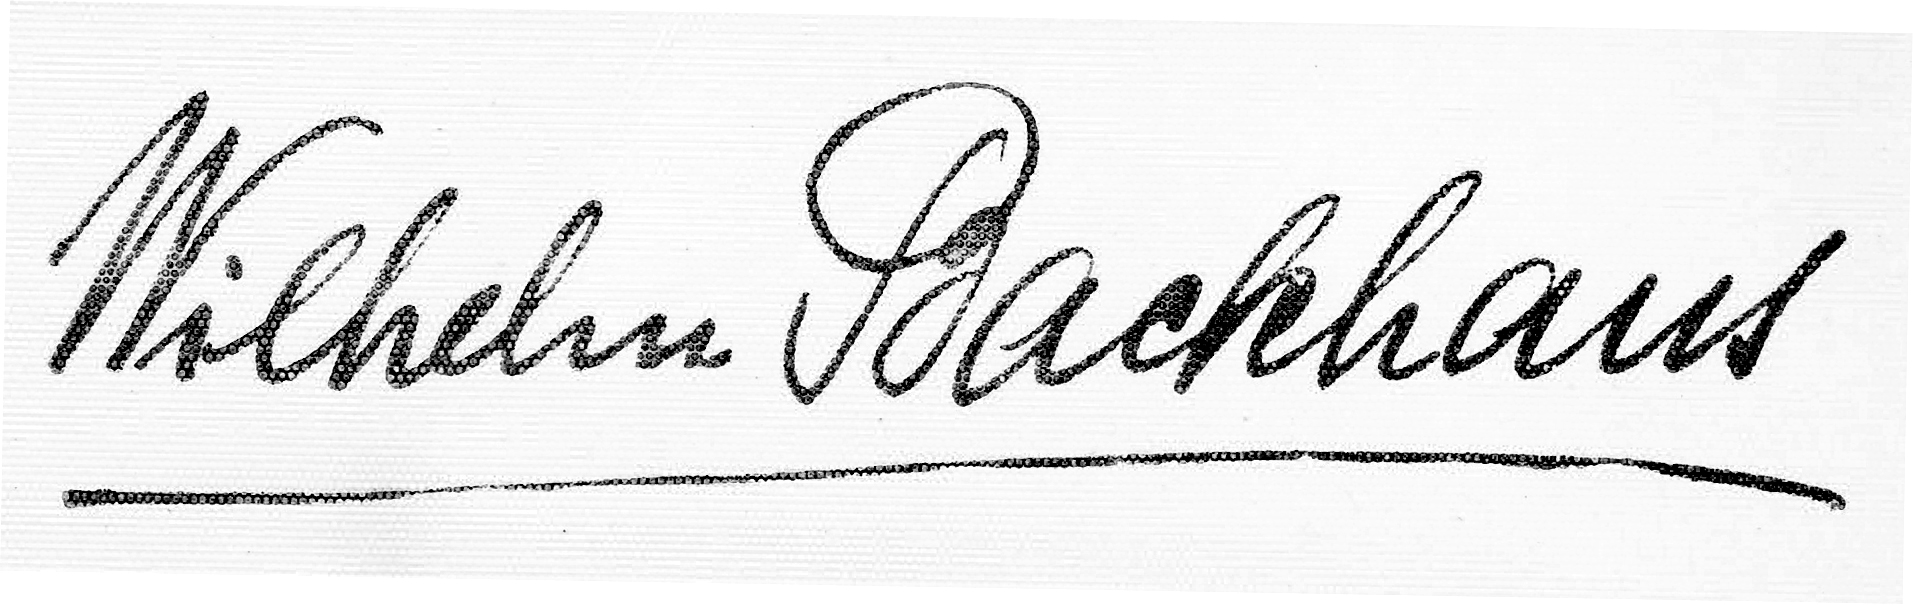 Wilhelm Backhaus